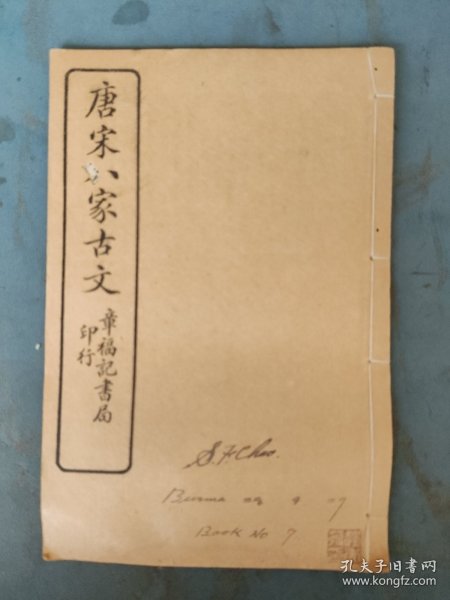 唐宋八家古文
章福記書局
印行
S. F. Chao.
Burma
Book No 7
孔夫子旧书网
www.kongfz.com